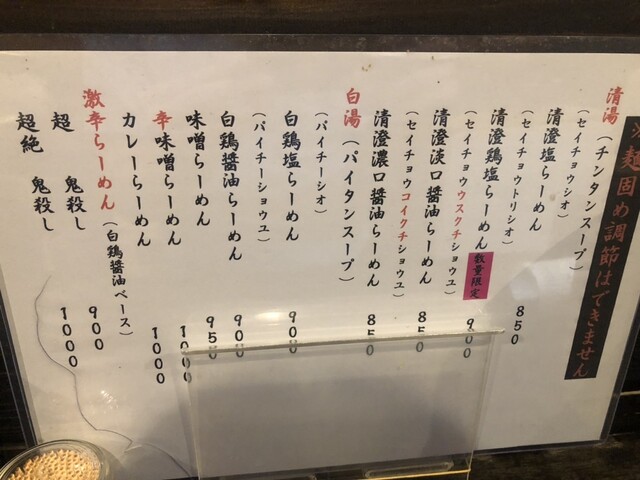 ※麺固め調節はできません
清湯（チンタンスープ）
（セイチョウシオ）
清澄塩らーめん 850
（セイチョウトリシオ）
清澄鶏塩らーめん 数量限定 900
（セイチョウウスクチショウユ）
清澄淡口醤油らーめん 850
（セイチョウコイクチショウユ）
清澄濃口醤油らーめん 850
白湯（パイタンスープ）
（パイチーシオ）
白鶏塩らーめん 900
（パイチーショウユ）
白鶏醤油らーめん 900
味噌らーめん 950
辛味噌らーめん 1000
カレーらーめん 1000
激辛らーめん（白鶏醤油ベース） 900
超 鬼殺し 1000
超絶 鬼殺し